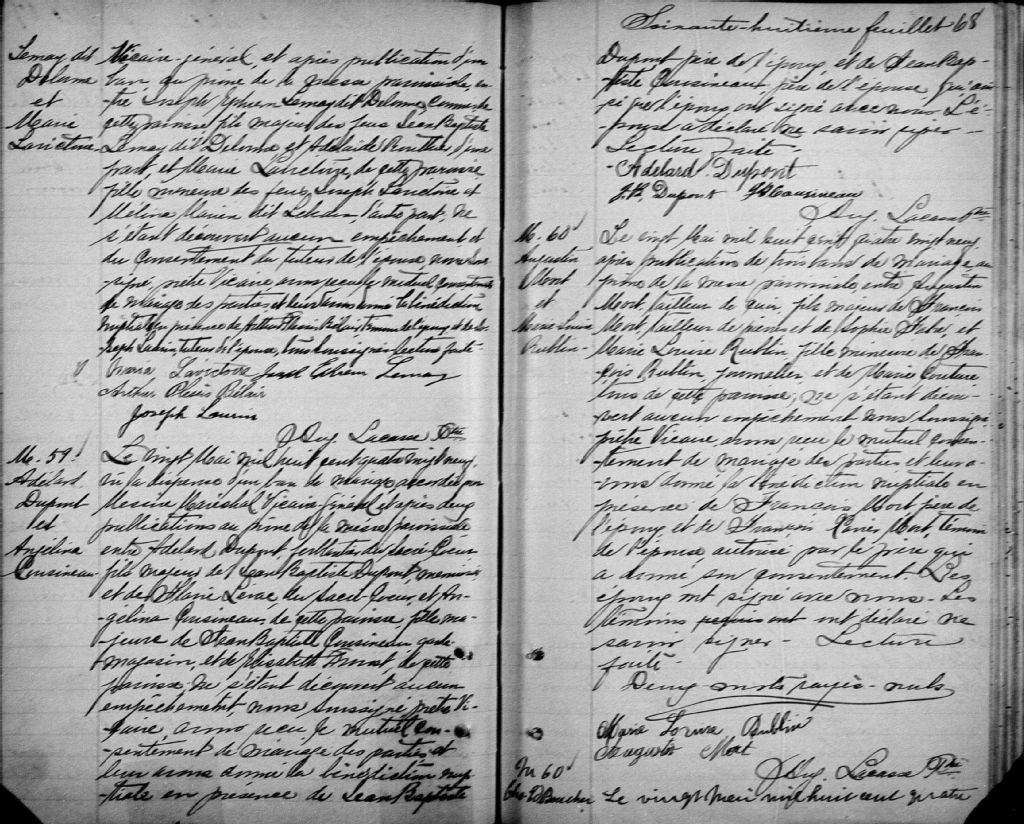 Lemay dit
Delorme
et
Marie
Larictoire
Vicaire-général, et après publication d'un
ban, au prône de la messe paroissiale, en-
tre Joseph Ephrem Lemay dit Delorme, Commis de
cette paroisse, fils majeur des feus Jean Baptiste
Lemay dit Delorme et Adelaide Routhier, d'une
part, et Marie de cette paroisse,
fille mineure des feus Joseph et
Mélina dit d'autre part, ne
s'étant découvert aucun empêchement et
du Consentement du tuteur de l'épouse nous sous-
signé, prêtre Vicaire avons reçu le mutuel consentement
de mariage des parties et leur avons donné la bénédiction
nuptiale en présence de Arthur Plessis Bélair témoin de l'époux et de Jo-
seph Laurin, tuteur de l'épouse, tous soussignés. Lecture faite.
Maria Joseph Ephrem Lemay
Arthur Plessis Bélair
Joseph Laurin
J Aug. Lacasse Ptre
M. 59
Adélard
Dupont
et
Angelina
Cousineau
Le vingt Mai mil huit cent quatre vingt neuf,
vu la dispense d'un ban de mariage accordée par
Messire Maréchal Vicaire Général et après deux
publications au prône de la messe paroissiale
entre Adelard Dupont, ferblantier du Sacré Coeur
fils majeur de Jean Baptiste Dupont, menuisier
et de Marie Levac, du Sacré-Coeur, et An-
gélina Cousineau, de cette paroisse, fille ma-
jeure de Jean Baptiste Cousineau garde-
magasin, et de Elisabeth de cette
paroisse, ne s'étant découvert aucun
empêchement, nous soussigné prêtre Vi-
caire, avons reçu le mutuel con-
sentement de mariage des parties et
leur avons donné la bénédiction nup-
tiale en présence de Jean Baptiste
Soixante-huitième feuillet 68
Dupont père de l'époux et de Jean Bap-
tiste Cousineau, père de l'épouse, qui ain-
si que l'époux ont signé avec nous. L'é-
pouse a déclaré ne savoir signer.
Lecture faite.
Adélard Dupont
J.B. Dupont J B Cousineau
J Aug. Lacasse Ptre
M. 60
Augustin
Mort
et
Marie Louise
Rublin
Le vingt Mai mil huit cent quatre vingt neuf,
après publications de trois bans de mariage au
prône de la messe paroissiale entre Augustin
Mort, tailleur de cuir, fils majeur de François
Mort, tailleur de pierres et de Sophie et
Marie Louise Rublin fille mineure de Fran-
çois Rublin, journalier, et de Marie Couture
tous de cette paroisse, ne s'étant décou-
vert aucun empêchement nous soussigné
prêtre Vicaire, avons reçu le mutuel consen-
tement de mariage des parties et leur a-
vons donné la bénédiction nuptiale en
présence de François Mort père de
l'époux et de François Xavier Mort, témoin
de l'épouse autorisé par le père qui
a donné son consentement. Les
époux ont signé avec nous. Les
témoins requis ont ont déclaré ne
savoir signer. Lecture
faite.
Deux mots rayés nuls
Marie Louise Rublin
Auguste Mort
J Aug. Lacasse Ptre
M 60
Boucher
Le vingt Mai mil huit cent quatre